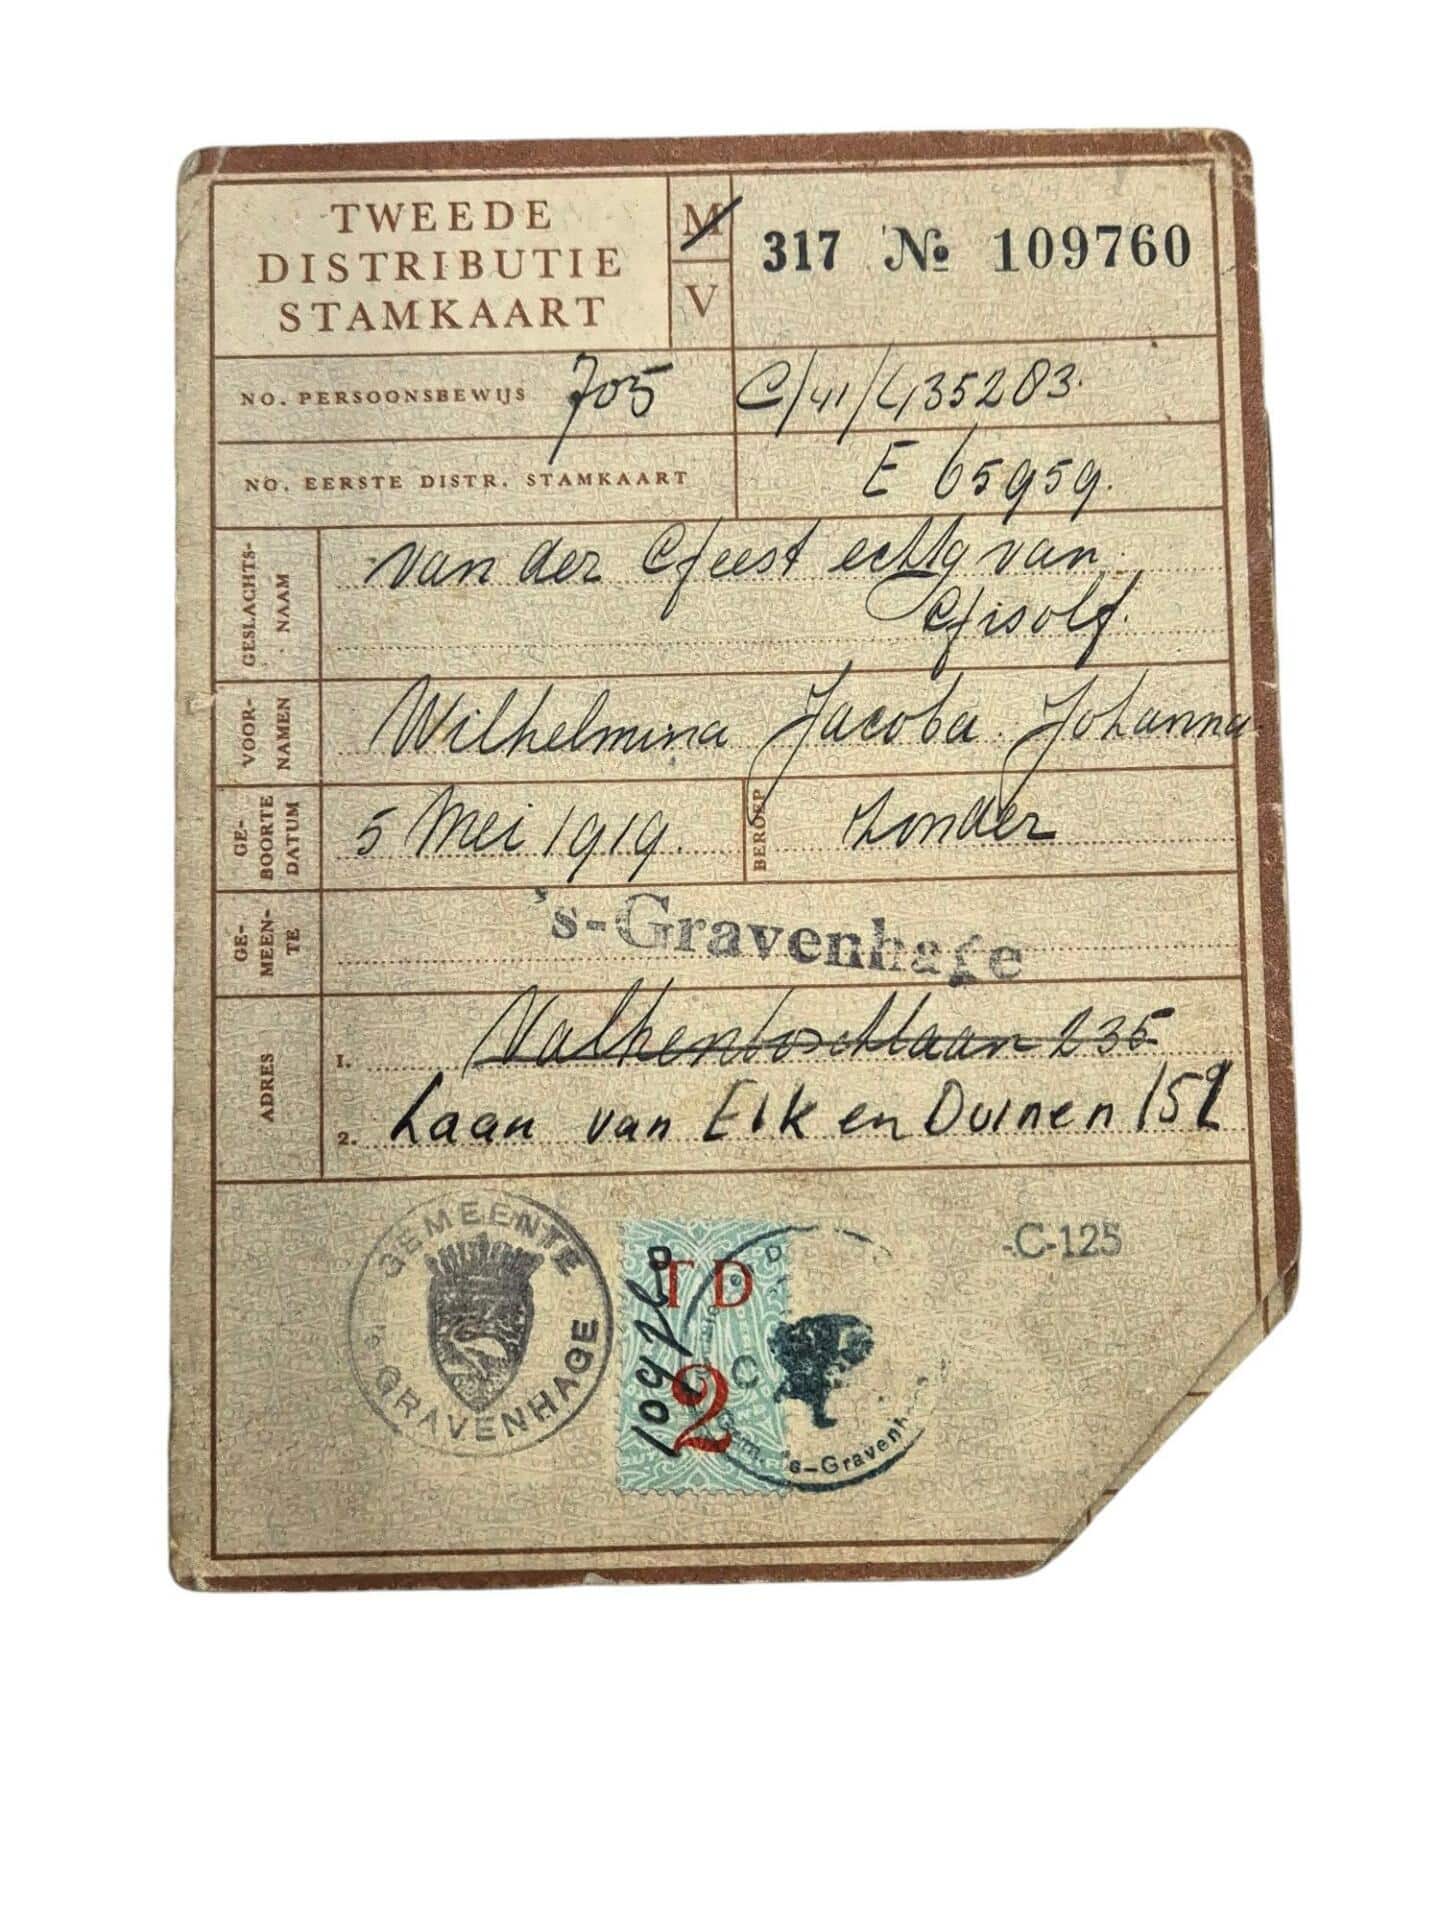 TWEEDE
DISTRIBUTIE
STAMKAART
M
V
317 № 109760
NO. PERSOONSBEWIJS 705 C/41/435283.
NO. EERSTE DISTR. STAMKAART E 65959.
GESLACHTS-
NAAM
van der Geest echtg van
Gisolf.
VOOR-
NAMEN
Wilhelmina Jacoba Johanna
GE-
BOORTE
DATUM
5 Mei 1919.
BEROEP
zonder
GE-
MEEN-
TE
's-Gravenhage
ADRES
1. Valkenboschlaan 235
2. Laan van Eik en Duinen 152
GEMEENTE
'S GRAVENHAGE
T D
2
109760
C
Gem. 's-Gravenh
C-125